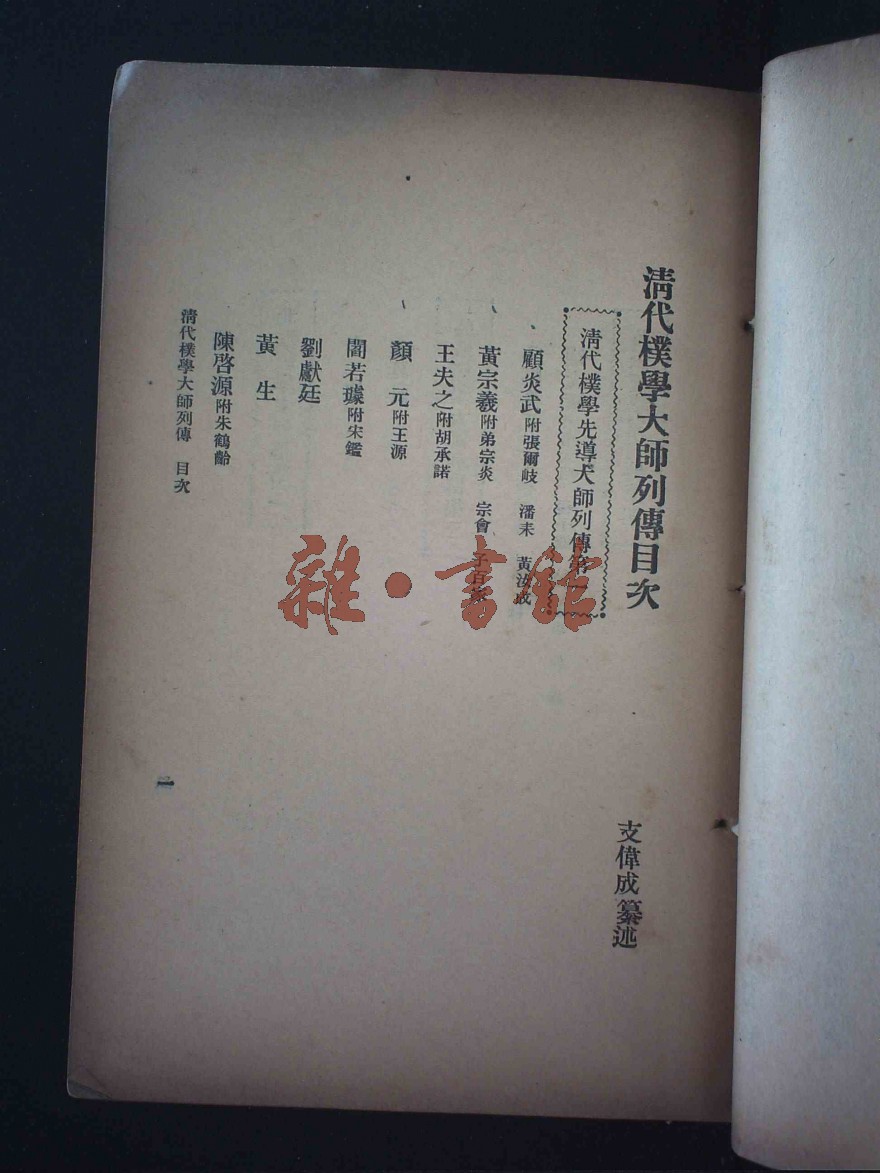 清代樸學大師列傳目次
支偉成纂述
清代樸學先導大師列傳第一
顧炎武附張爾岐 潘耒 黃汝成
黃宗羲附弟宗炎 宗會 子百家
王夫之附胡承諾
顏元附王源
閻若璩附宋鑑
劉獻廷
黃生
陳啓源附朱鶴齡
清代樸學大師列傳 目次
一
雜·書館